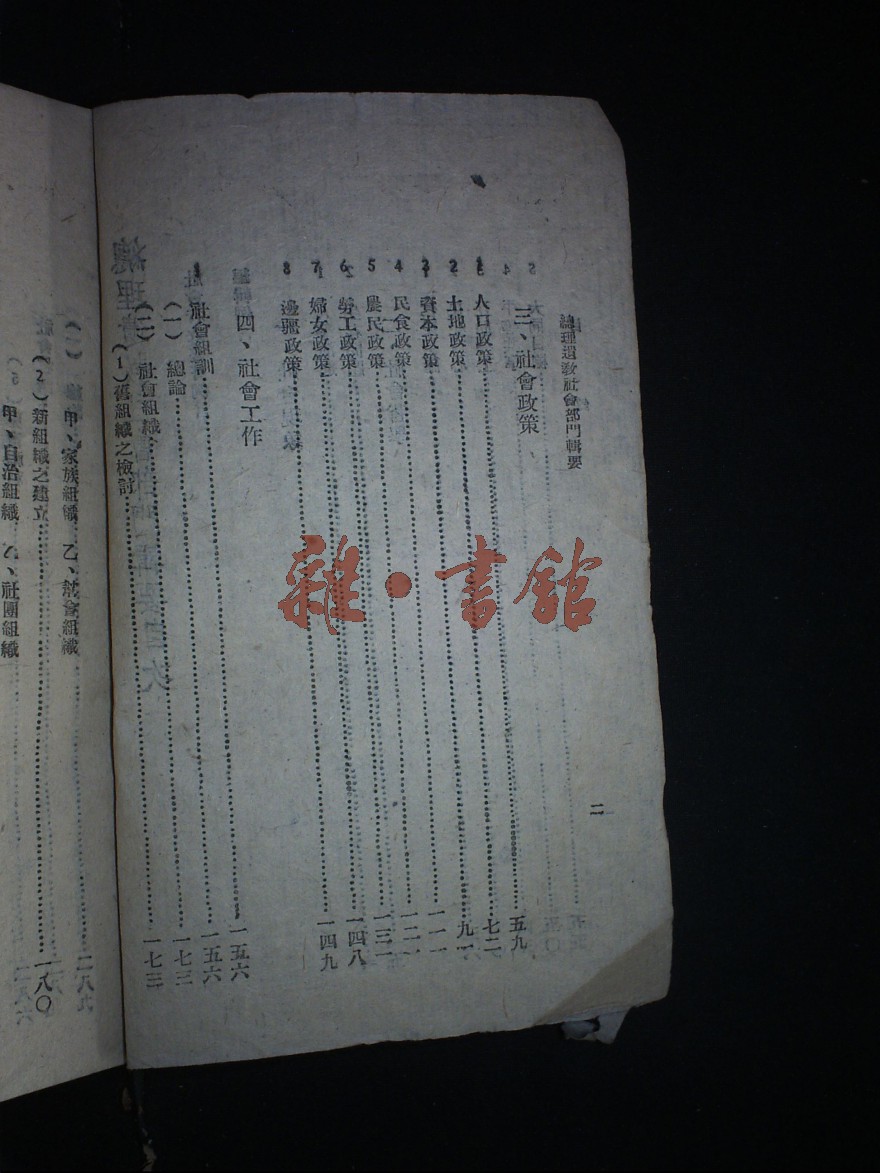 總理遺教社會部門輯要 二
三、社會政策
1 人口政策……五九
2 土地政策……七二
3 資本政策……九一
4 民食政策……一一一
5 農民政策……一二一
6 勞工政策……一三一
7 婦女政策……一四八
8 邊疆政策……一四九
四、社會工作
1 社會組訓……一五六
(一) 總論……一五六
(二) 社會組織……一七三
(1)舊組織之檢討……一七三
甲、家族組織 乙、會組織
(2)新組織之建立……一八〇
甲、自治組織 乙、社團組織
雜·書館